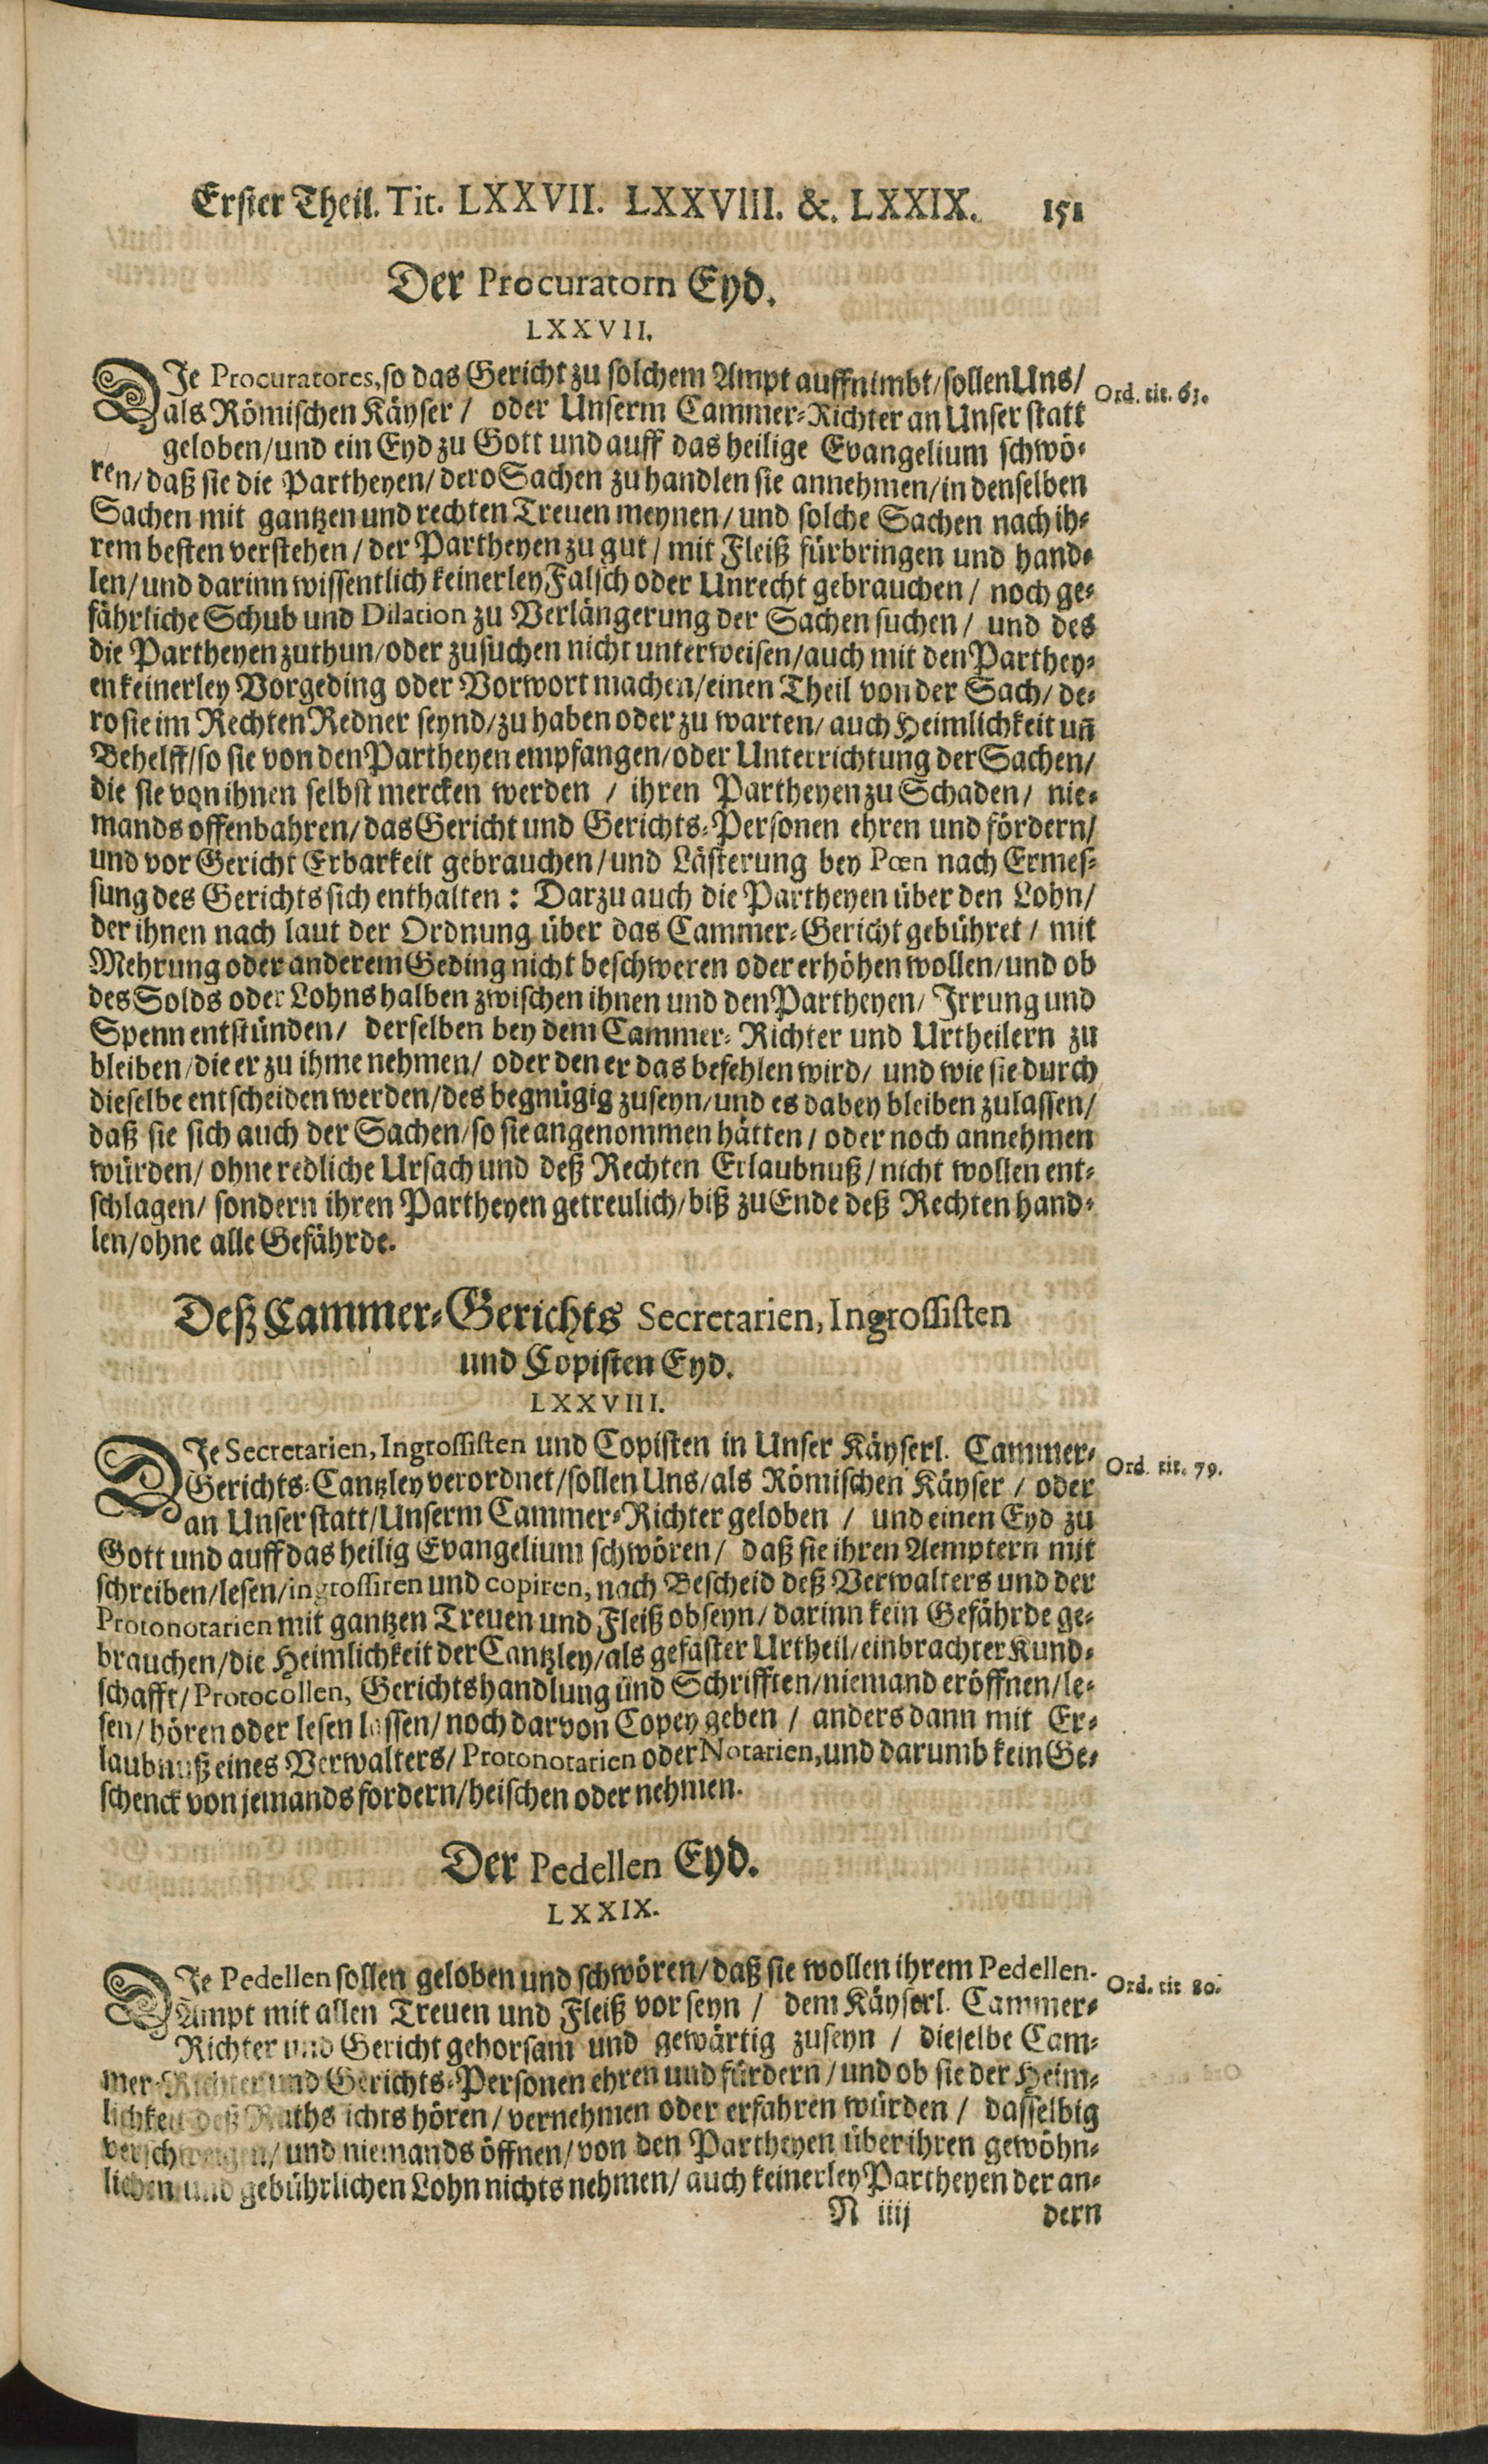 Erster Theil. Tit. LXXVII. LXXVIII. &. LXXIX. 151
Der Procuratorn Eyd.
LXXVII.
DIe Procuratores, so das Gericht zu solchem Ampt auffnimbt/sollen Uns/
Ord. tit. 61.
als Römischen Käyser / oder Unserm Cammer-Richter an Unser statt
geloben/und ein Eyd zu Gott und auff das heilige Evangelium schwö-
ren/daß sie die Partheyen/dero Sachen zu handlen sie annehmen/in denselben
Sachen mit gantzen und rechten Treuen meynen/und solche Sachen nach ih-
rem besten verstehen/der Partheyen zu gut/mit Fleiß fürbringen und hand-
len/und darinn wissentlich keinerley Falsch oder Unrecht gebrauchen/ noch ge-
fährliche Schub und Dilation zu Verlängerung der Sachen suchen/ und des
die Partheyen zuthun/oder zusuchen nicht unterweisen/auch mit den Parthey-
en keinerley Vorgeding oder Vorwort machen/einen Theil von der Sach/de-
ro sie im Rechten Redner seynd/zu haben oder zu warten/auch Heimlichkeit uñ
Behelff/so sie von den Partheyen empfangen/oder Unterrichtung der Sachen/
die sie von ihnen selbst mercken werden / ihren Partheyen zu Schaden/ nie-
mands offenbahren/das Gericht und Gerichts-Personen ehren und fördern/
und vor Gericht Erbarkeit gebrauchen/und Lästerung bey Pœn nach Ermes-
sung des Gerichts sich enthalten: Darzu auch die Partheyen über den Lohn/
der ihnen nach laut der Ordnung über das Cammer-Gericht gebühret/ mit
Mehrung oder anderem Geding nicht beschweren oder erhöhen wollen/und ob
des Solds oder Lohns halben zwischen ihnen und den Partheyen/ Irrung und
Spenn entstünden/ derselben bey dem Cammer-Richter und Urtheilern zu
bleiben/die er zu ihme nehmen/ oder den er das befehlen wird/ und wie sie durch
dieselbe entscheiden werden/des begnügig zuseyn/und es dabey bleiben zulassen/
daß sie sich auch der Sachen/so sie angenommen hätten/ oder noch annehmen
würden/ohne redliche Ursach und deß Rechten Erlaubnuß/nicht wollen ent-
schlagen/sondern ihren Partheyen getreulich/biß zu Ende deß Rechten hand-
len/ohne alle Gefährde.
Deß Cammer-Gerichts Secretarien, Ingrossisten
und Copisten Eyd.
LXXVIII.
DIe Secretarien, Ingrossisten und Copisten in Unser Käyserl. Cammer-
Ord. tit. 79.
Gerichts-Cantzley verordnet/sollen Uns/als Römischen Käyser / oder
an Unser statt/Unserm Cammer-Richter geloben / und einen Eyd zu
Gott und auff das heilig Evangelium schwören/ daß sie ihren Aemptern mit
schreiben/lesen/ingrossiren und copiren, nach Bescheid deß Verwalters und der
Protonotarien mit gantzen Treuen und Fleiß obseyn/darinn kein Gefährde ge-
brauchen/die Heimlichkeit der Cantzley/als gefaster Urtheil/einbrachter Kund-
schafft/Protocollen, Gerichtshandlung und Schrifften/niemand eröffnen/le-
sen/hören oder lesen lassen/noch darvon Copey geben / anders dann mit Er-
laubnuß eines Verwalters/Protonotarien oder Notarien, und darumb kein Ge-
schenck von jemands fordern/heischen oder nehmen.
Der Pedellen Eyd.
LXXIX.
DIe Pedellen sollen geloben und schwören/daß sie wollen ihrem Pedellen-
Ord. tit 80.
Ampt mit allen Treuen und Fleiß vor seyn / dem Käyserl. Cammer-
Richter und Gericht gehorsam und gewärtig zuseyn / dieselbe Cam-
mer-Richter und Gerichts-Personen ehren und fürdern/und ob sie der Heim-
lichkeit deß Raths ichts hören/vernehmen oder erfahren würden / dasselbig
verschweigen/und niemands öffnen/von den Partheyen über ihren gewöhn-
lichen und gebührlichen Lohn nichts nehmen/auch keinerley Partheyen der an-
N iiij dern